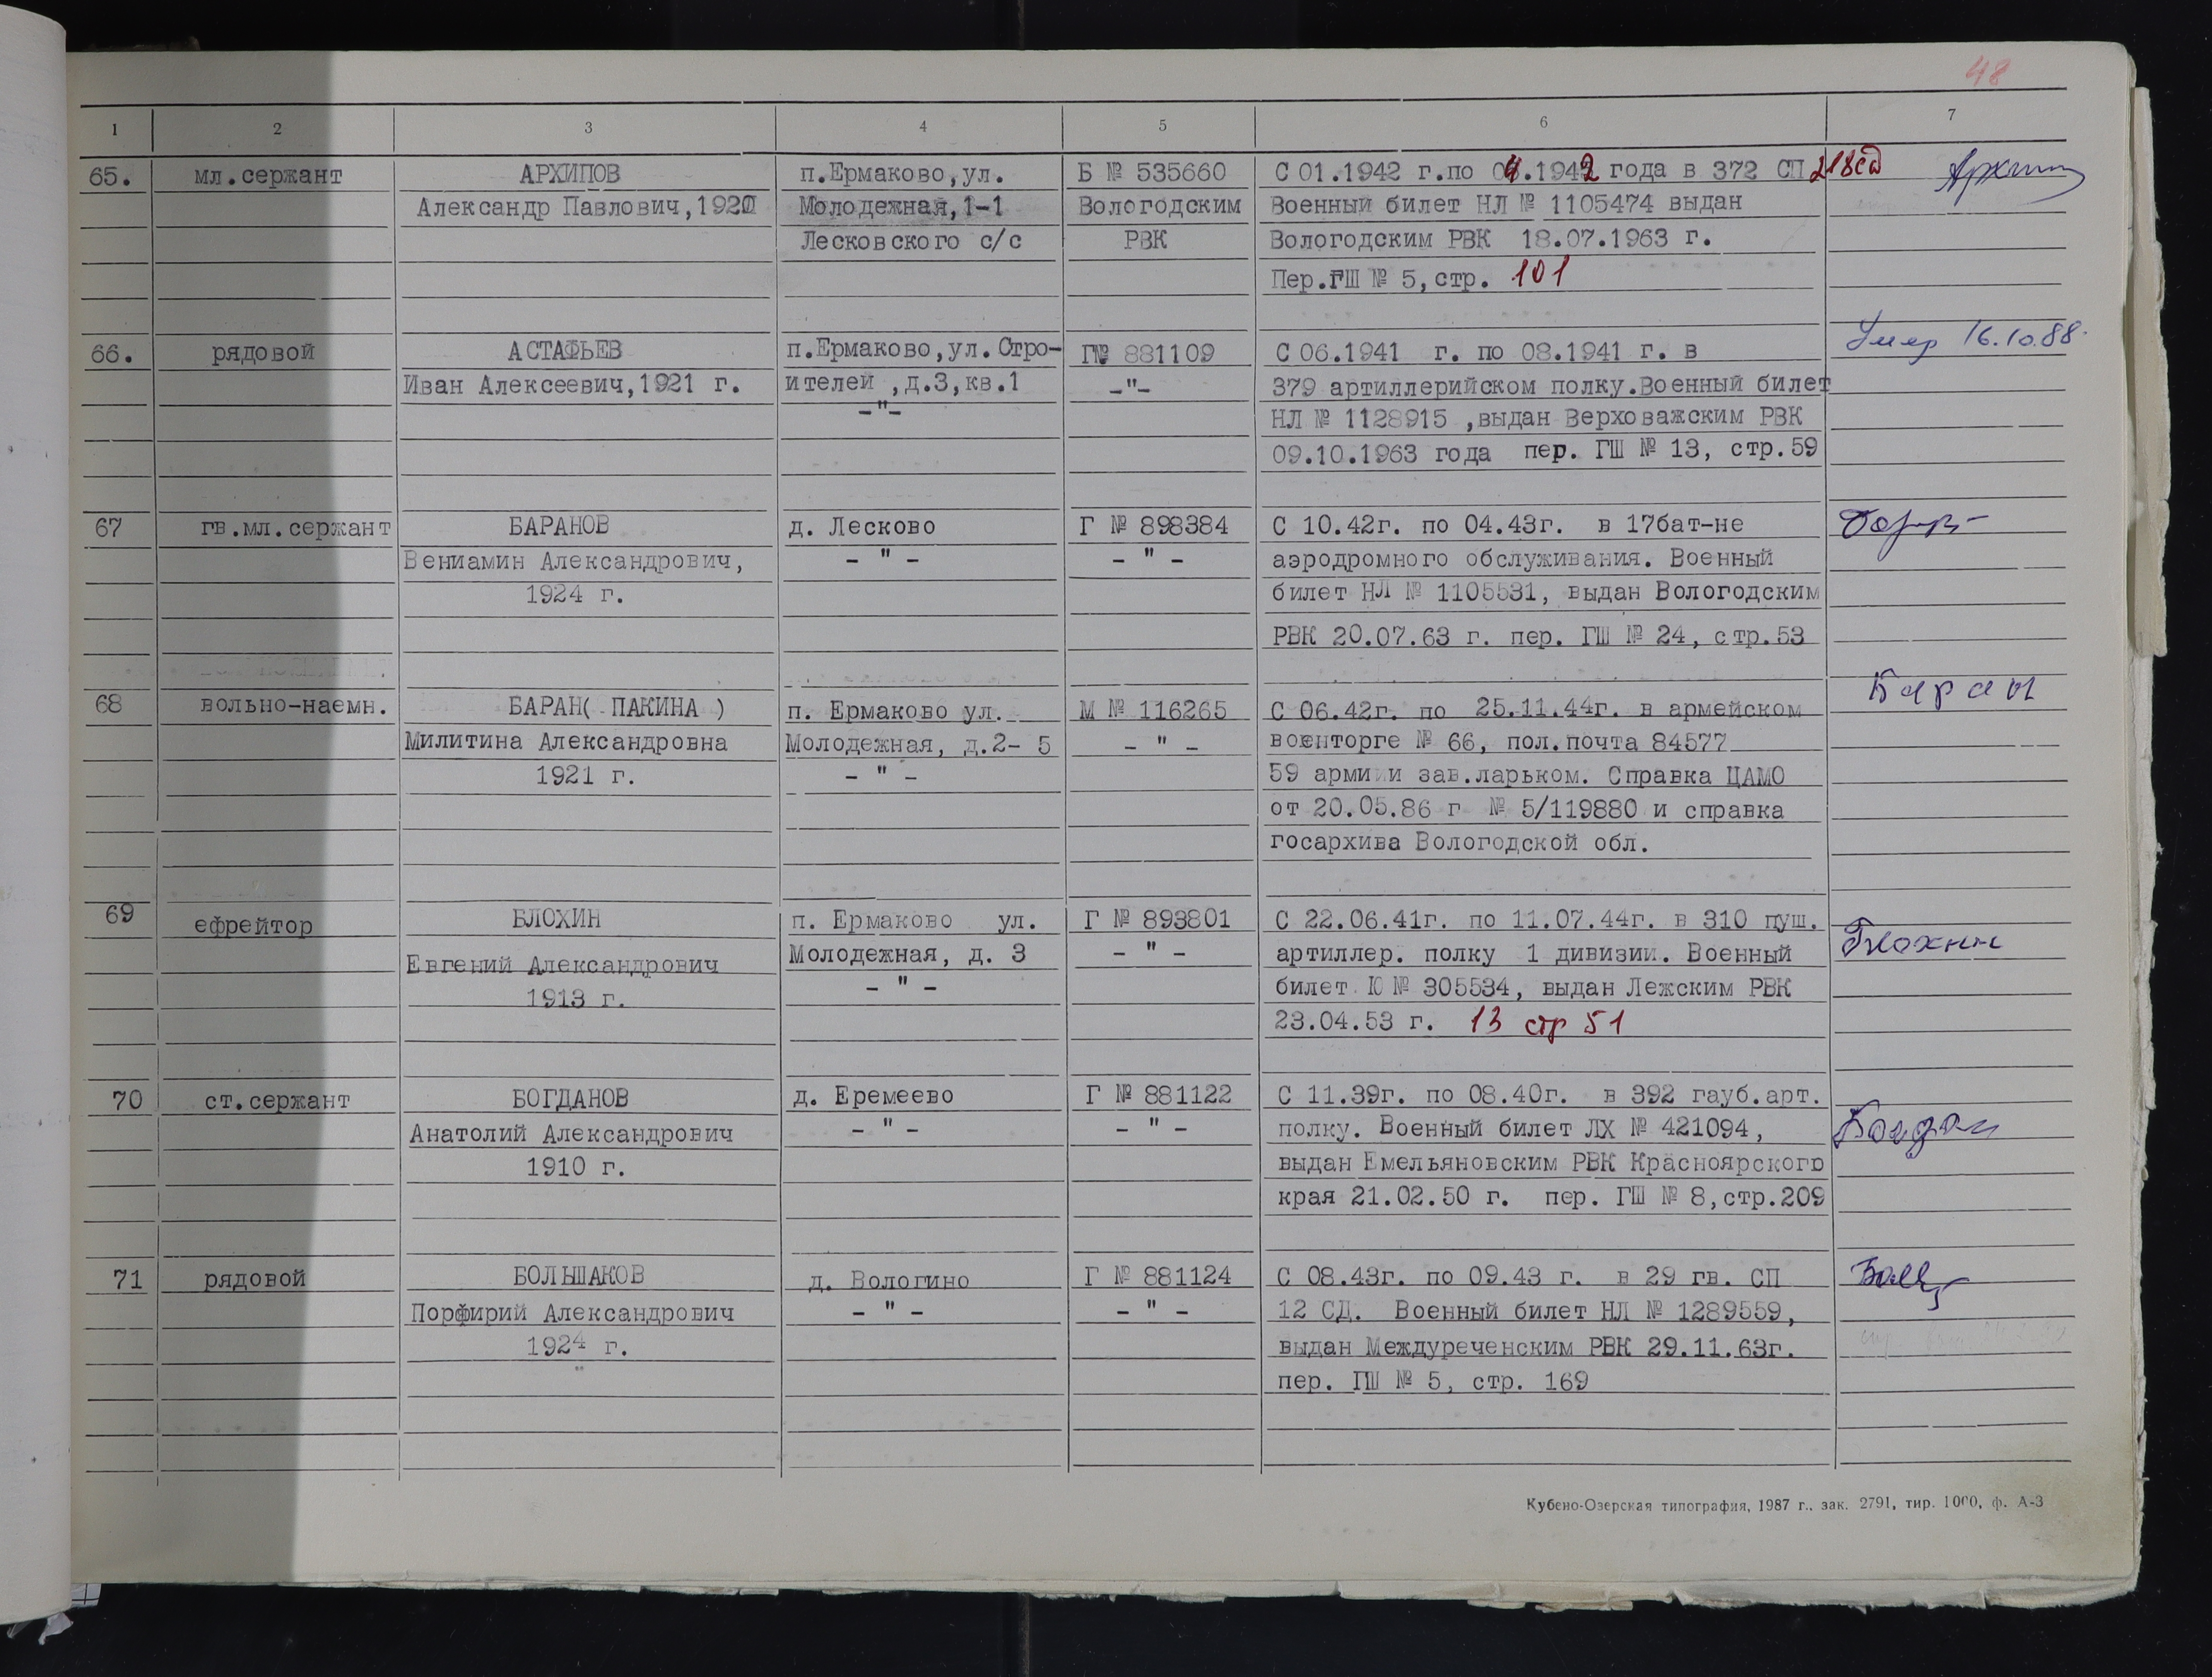 48
1 2 3 4 5 6 7
65. мл.сержант АРХИПОВ п.Ермаково,ул. Б № 535660 С 01.1942 г.по 04.1942 года в 372 СП 218сд
Александр Павлович, Молодежная,1-1 Вологодским Военный билет НЛ № 1105474 выдан
Лесковского с/с РВК Вологодским РВК 18.07.1963 г.
Пер.ГШ № 5,стр. 101
66. рядовой АСТАФЬЕВ п.Ермаково,ул.Стро- Г№ 881109 С 06.1941 г. по 08.1941 г. в Умер 16.10.88.
Иван Алексеевич,1921 г. ителей ,д.3,кв.1 -"- 379 артиллерийском полку.Военный билет
-"- НЛ № 1128915 ,выдан Верховажским РВК
09.10.1963 года пер. ГШ № 13, стр.59
67 гв.мл.сержант БАРАНОВ д. Лесково Г № 898384 С 10.42г. по 04.43г. в 17бат-не
Вениамин Александрович, - " - - " - аэродромного обслуживания. Военный
1924 г. билет НЛ № 1105531, выдан Вологодским
РВК 20.07.63 г. пер. ГШ № 24, стр.53
68 вольно-наемн. БАРАН( ПАКИНА ) п. Ермаково ул. М № 116265 С 06.42г. по 25.11.44г. в армейском Баран
Милитина Александровна Молодежная, д.2- 5 - " - военторге № 66, пол.почта 84577
1921 г. - " - 59 армии и зав.ларьком. Справка ЦАМО
от 20.05.86 г № 5/119880 и справка
госархива Вологодской обл.
69 ефрейтор БЛОХИН п. Ермаково ул. Г № 893801 С 22.06.41г. по 11.07.44г. в 310 пуш. Блохин
Евгений Александрович Молодежная, д. 3 - " - артиллер. полку 1 дивизии. Военный
1913 г. - " - билет Ю № 305534, выдан Лежским РВК
23.04.53 г. 13 стр 51
70 ст.сержант БОГДАНОВ д. Еремеево Г № 881122 С 11.39г. по 08.40г. в 392 гауб.арт.
Анатолий Александрович - " - - " - полку. Военный билет ЛХ № 421094,
1910 г. выдан Емельяновским РВК Красноярского
края 21.02.50 г. пер. ГШ № 8,стр.209
71 рядовой БОЛЬШАКОВ д. Вологино Г № 881124 С 08.43г. по 09.43 г. в 29 гв. СП
Порфирий Александрович - " - - " - 12 СД. Военный билет НЛ № 1289559,
1924 г. выдан Междуреченским РВК 29.11.63г.
пер. ГШ № 5, стр. 169
Кубено-Озерская типография, 1987 г., зак. 2791, тир. 1000, ф. А-3